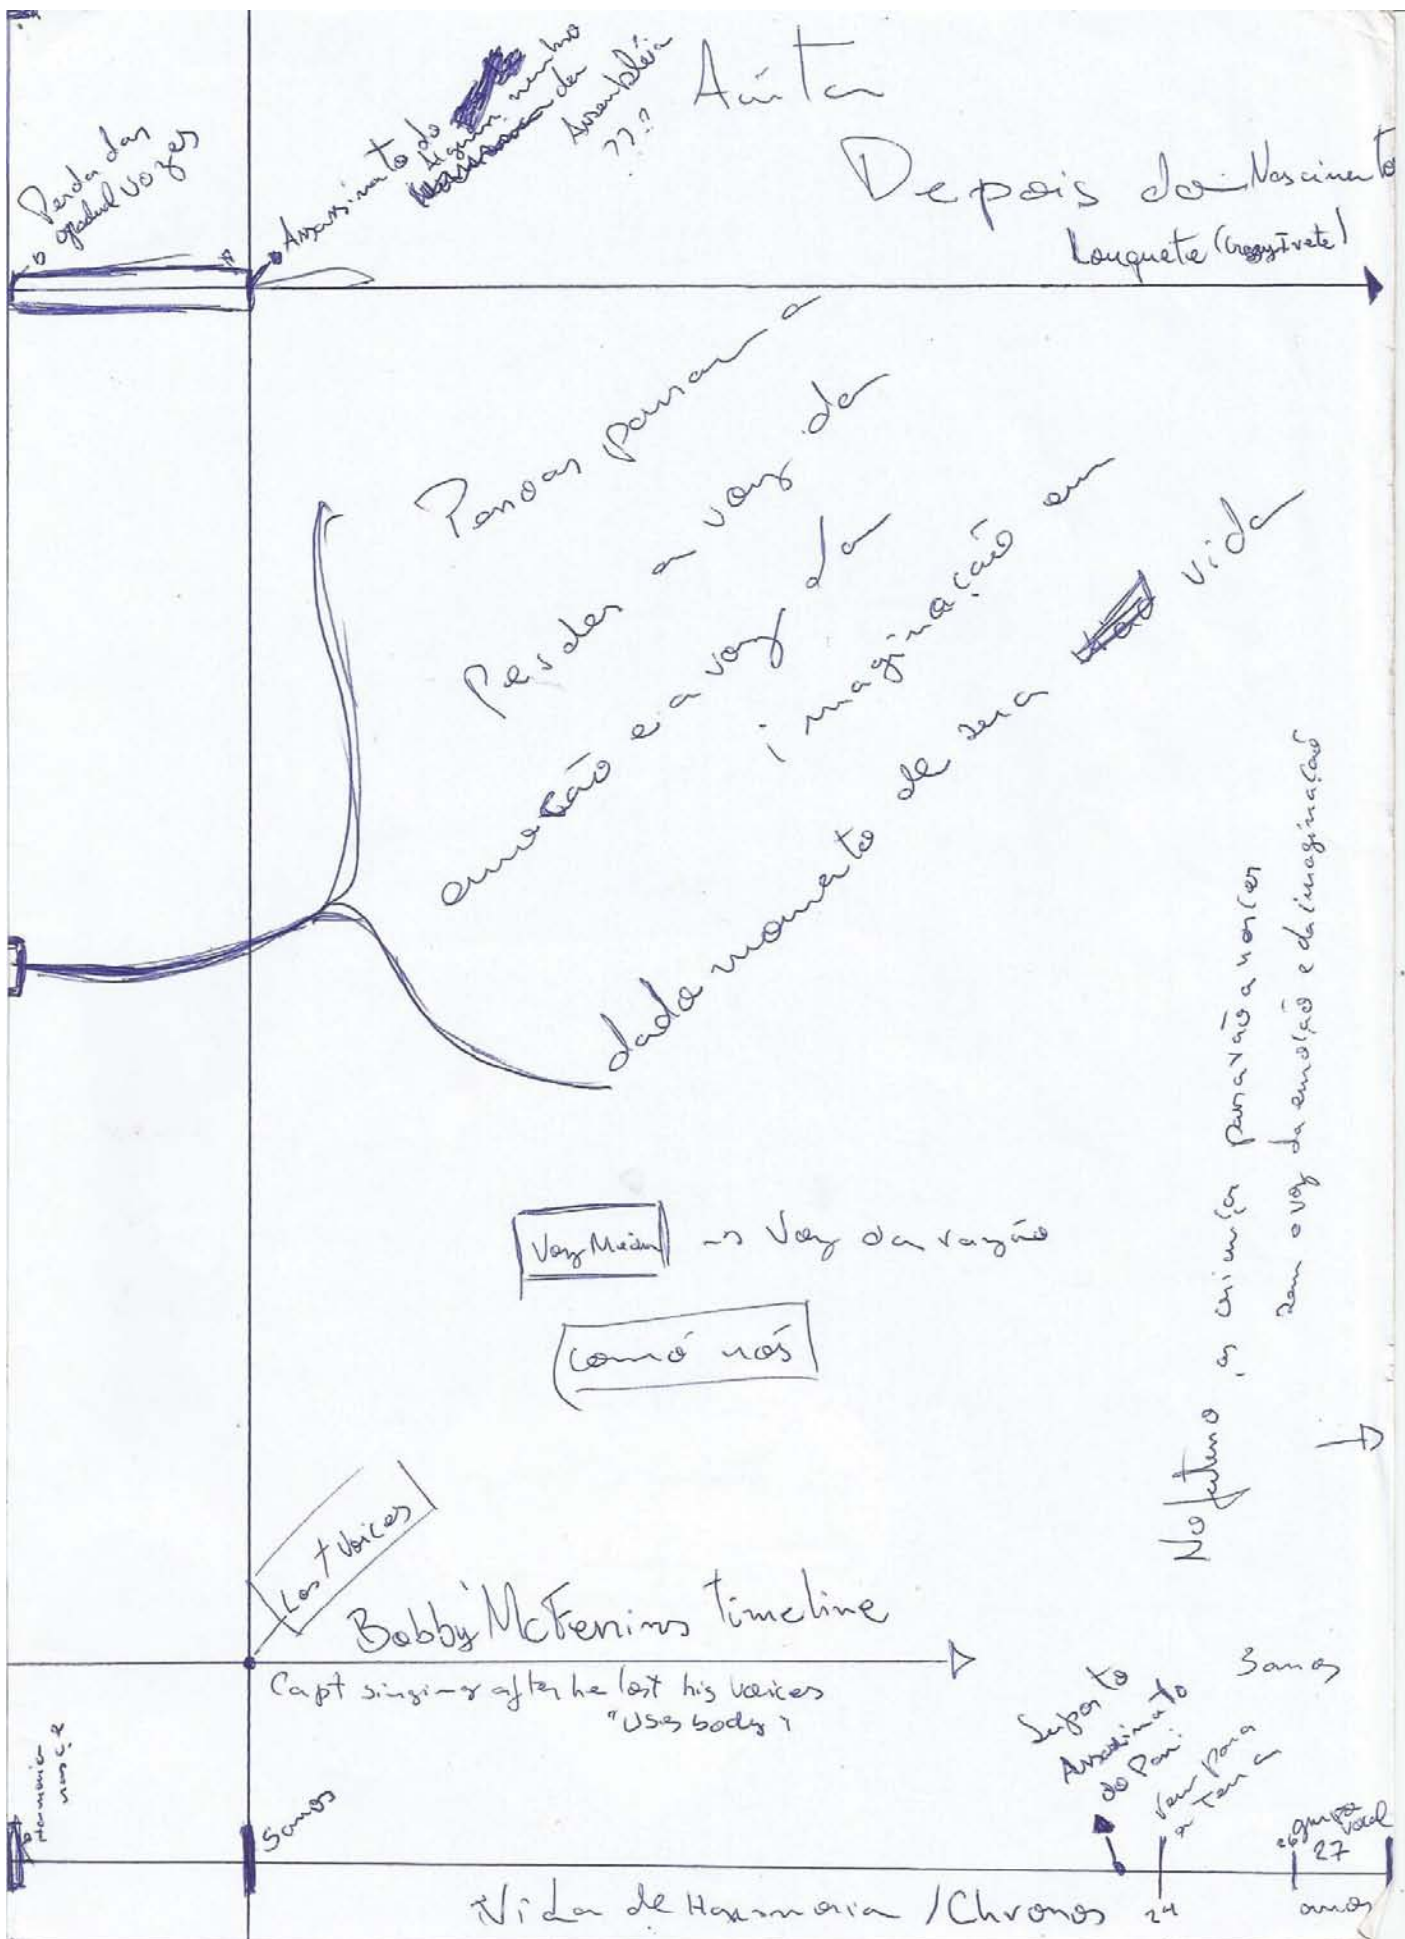 Perda das
gradual vozes
Assassinato do
Assembléia
???
Depois do Nascimento
Louquete (Crazy Ivete)
Pessoas passam a
Perder a voz da
emoção e a voz da
imaginação em
dado momento de sua vida
No futuro, as crianças passarão a nascer
sem a voz da emoção e da imaginação
Voz Média → Voz da razão
como nós
Lost Voices
Bobby McFerrins Timeline
Capt singing after he lost his voices
"Uses body"
Harmonia
nasce
5 anos
Suposto
Assassinato
do Pai
Vem para
a Terra
3 anos
26
grupo
vocal
27
24
anos
Vida de Harmonia / Chronos